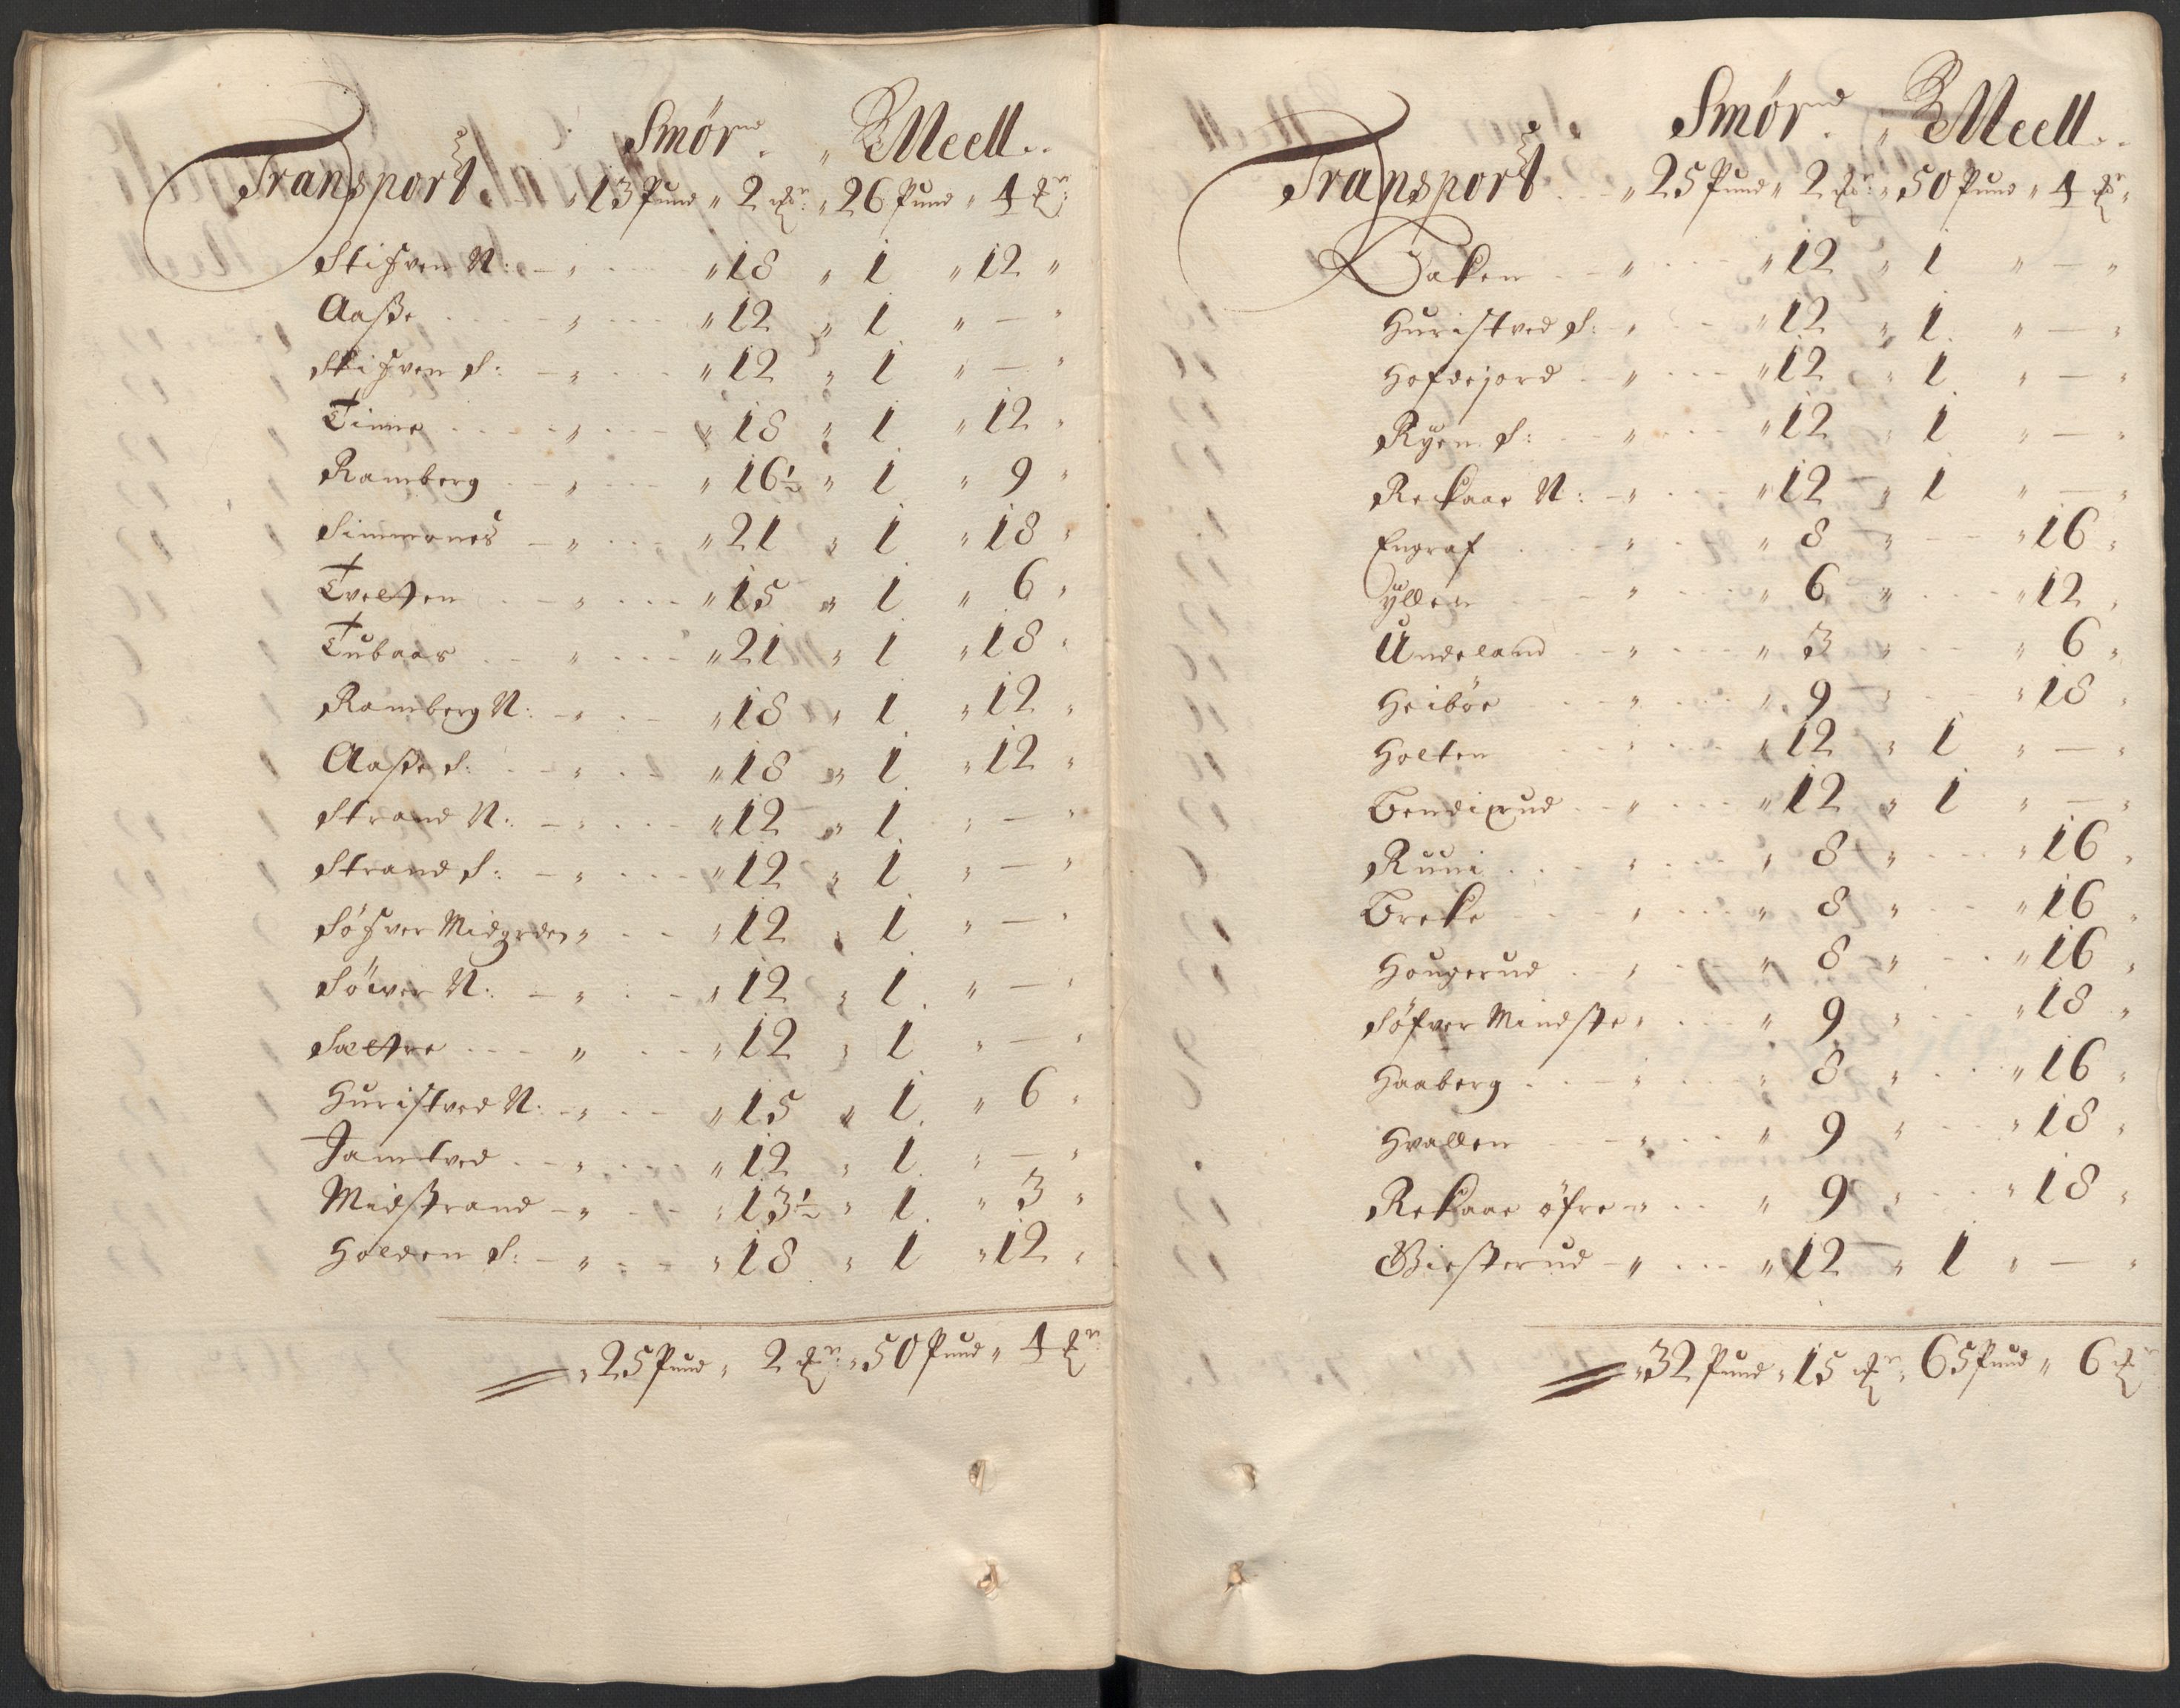 Smør. Meell.
Transport. 13 Pund 2 ℔r. 26 Pund 4 ℔r.
Stifven N: 18 1 12
Aasße 12 1 —
Stifven S: 12 1 —
Tinne 18 1 12
Ramberg 16½ 1 9
Simmones 21 1 18
Tvetten 15 1 6
Tubaas 21 1 18
Ramberg N: 18 1 12
Aaste S: 18 1 12
Strand N: 12 1 —
Strand S: 12 1 —
Söfver Midgrden 12 1 —
Söwer N: 12 1 —
Sættre 12 1 —
Huristved N: 15 1 6
Jamtved 12 1 —
Midstrand 13½ 1 3
Holden S: 18 1 12
25 Pund 2 ℔r. 50 Pund 4 ℔r.
Smør. Meell.
Transport 25 Pund 2 ℔r. 50 Pund 4 ℔r.
Baken 12 1 —
Huristved S: 12 1 —
Hofdejord 12 1 —
Ryen S: 12 1 —
Rekaae N: 12 1 —
Engraf 8 16
Gyllen 6 12
Undeland 3 6
Heibøe 9 18
Holten 12 1 —
Bendixrud 12 1 —
Runi 8 16
Breke 8 16
Hougerud 8 16
Söfver Mindste 9 18
Haaberg 8 16
Hvallen 9 18
Rekaae öfre 9 18
Giesterud 12 1 —
32 Pund 15 ℔r. 65 Pund 6 ℔r.